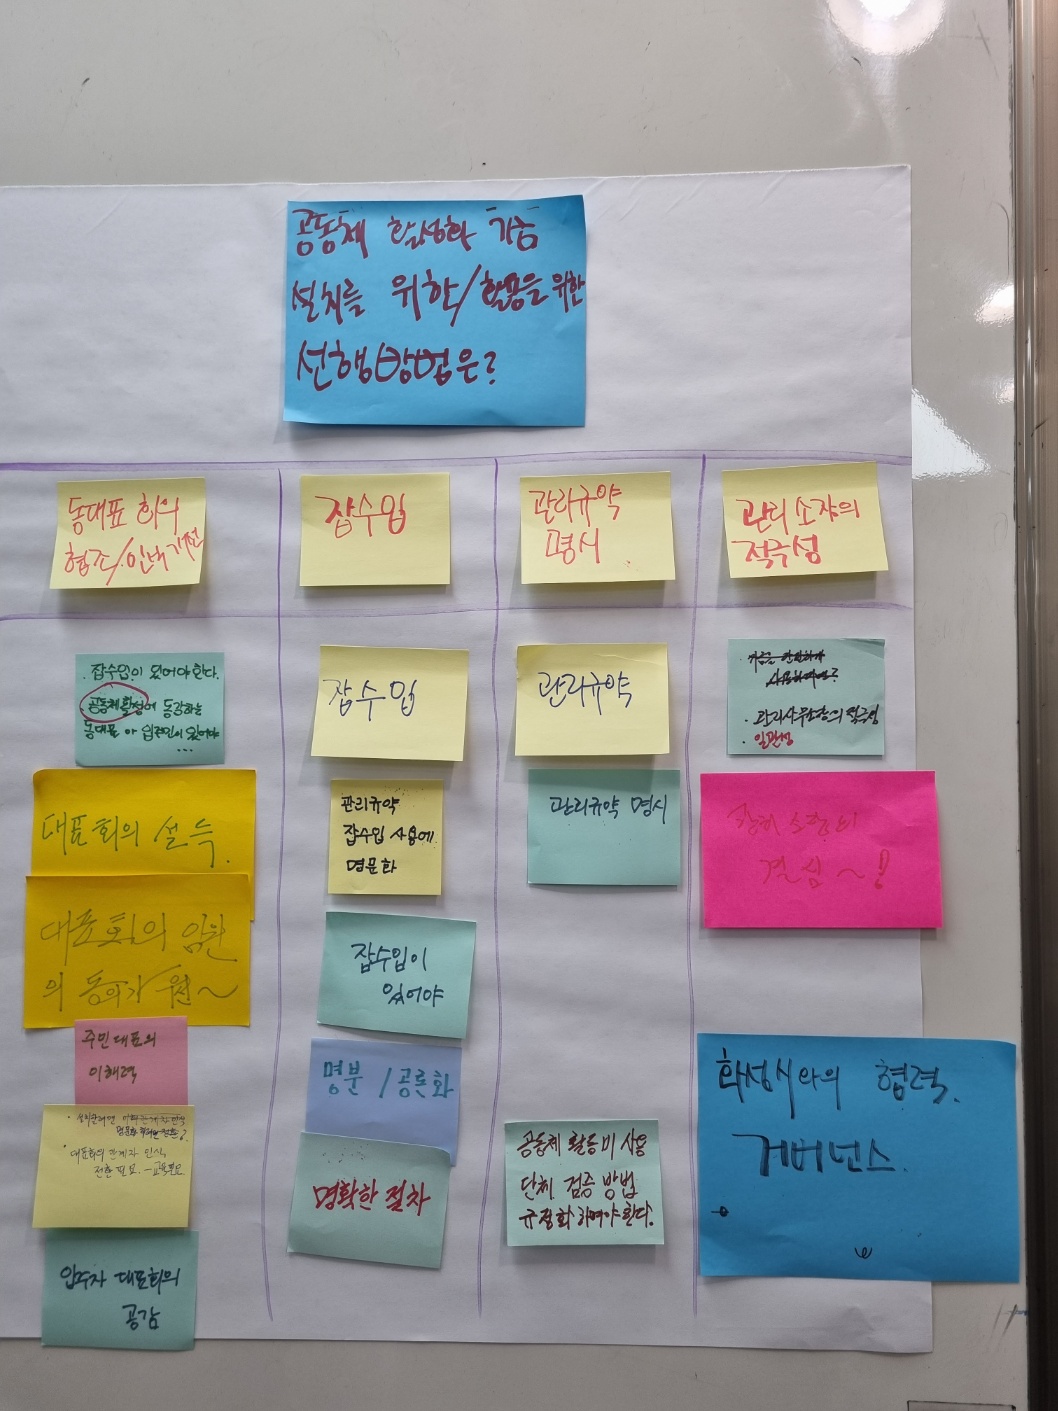 공동체 활성화 기금
설치를 위한/활용을 위한
선행방법은?
동대표 회의
협조/인식개선
잡수입
관리규약
명시
관리소장의
적극성
. 잡수입이 있어야 한다.
. 공동체활성에 동감하는
동대표 아 입주민이 있어야
...
대표회의 설득.
대표회의 임원
의 동의가 필~
주민대표의
이해력
• 대표회의 관계자 인식
전환 필요. - 교육필요
입주자 대표회의
공감
잡수입
관리규약
잡수입 사용에
명문화
잡수입이
있어야
명분 / 공론화
명확한 절차
관리규약
관리규약 명시
공동체 활동비 사용
단체 검증 방법
규정화 하여야 한다.
• 관리사무소장의 적극성
• 일관성
결심~!
화성시와의 협력.
거버넌스.